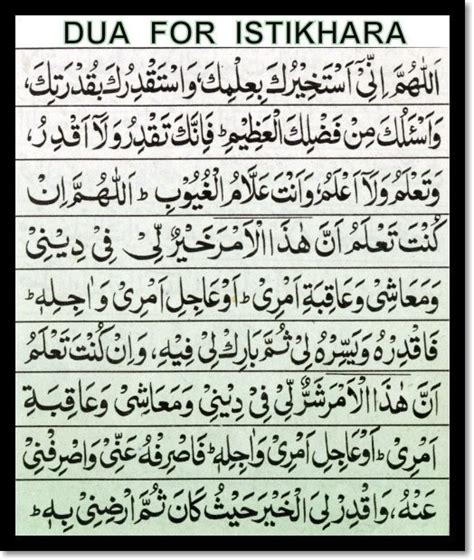 DUA FOR ISTIKHARA
اَللّٰهُمَّ اِنِّیْ اَسْتَخِیْرُكَ بِعِلْمِكَ وَاسْتَقْدِرُكَ بِقُدْرَتِكَ
وَاَسْئَلُكَ مِنْ فَضْلِكَ الْعَظِیْمِ ط فَاِنَّكَ تَقْدِرُ وَلَآ اَقْدِرُ،
وَتَعْلَمُ وَلَآ اَعْلَمُ، وَاَنْتَ عَلَّامُ الْغُیُوْبِ ط اَللّٰهُمَّ اِنْ
كُنْتَ تَعْلَمُ اَنَّ هٰذَا الْاَمْرَ خَیْرٌ لِّیْ فِیْ دِیْنِیْ
وَمَعَاشِیْ وَعَاقِبَةِ اَمْرِیْ ط اَوْ عَاجِلِ اَمْرِیْ وَاٰجِلِهٖ ط
فَاقْدِرْهُ وَیَسِّرْهُ لِیْ ثُمَّ بَارِكْ لِیْ فِیْهِ، وَاِنْ كُنْتَ تَعْلَمُ
اَنَّ هٰذَا الْاَمْرَ شَرٌّ لِّیْ فِیْ دِیْنِیْ وَمَعَاشِیْ وَعَاقِبَةِ
اَمْرِیْ ط اَوْ عَاجِلِ اَمْرِیْ وَاٰجِلِهٖ ط فَاصْرِفْهُ عَنِّیْ وَاصْرِفْنِیْ
عَنْهُ، وَاقْدِرْ لِیَ الْخَیْرَ حَیْثُ كَانَ ثُمَّ اَرْضِنِیْ بِهٖ ط